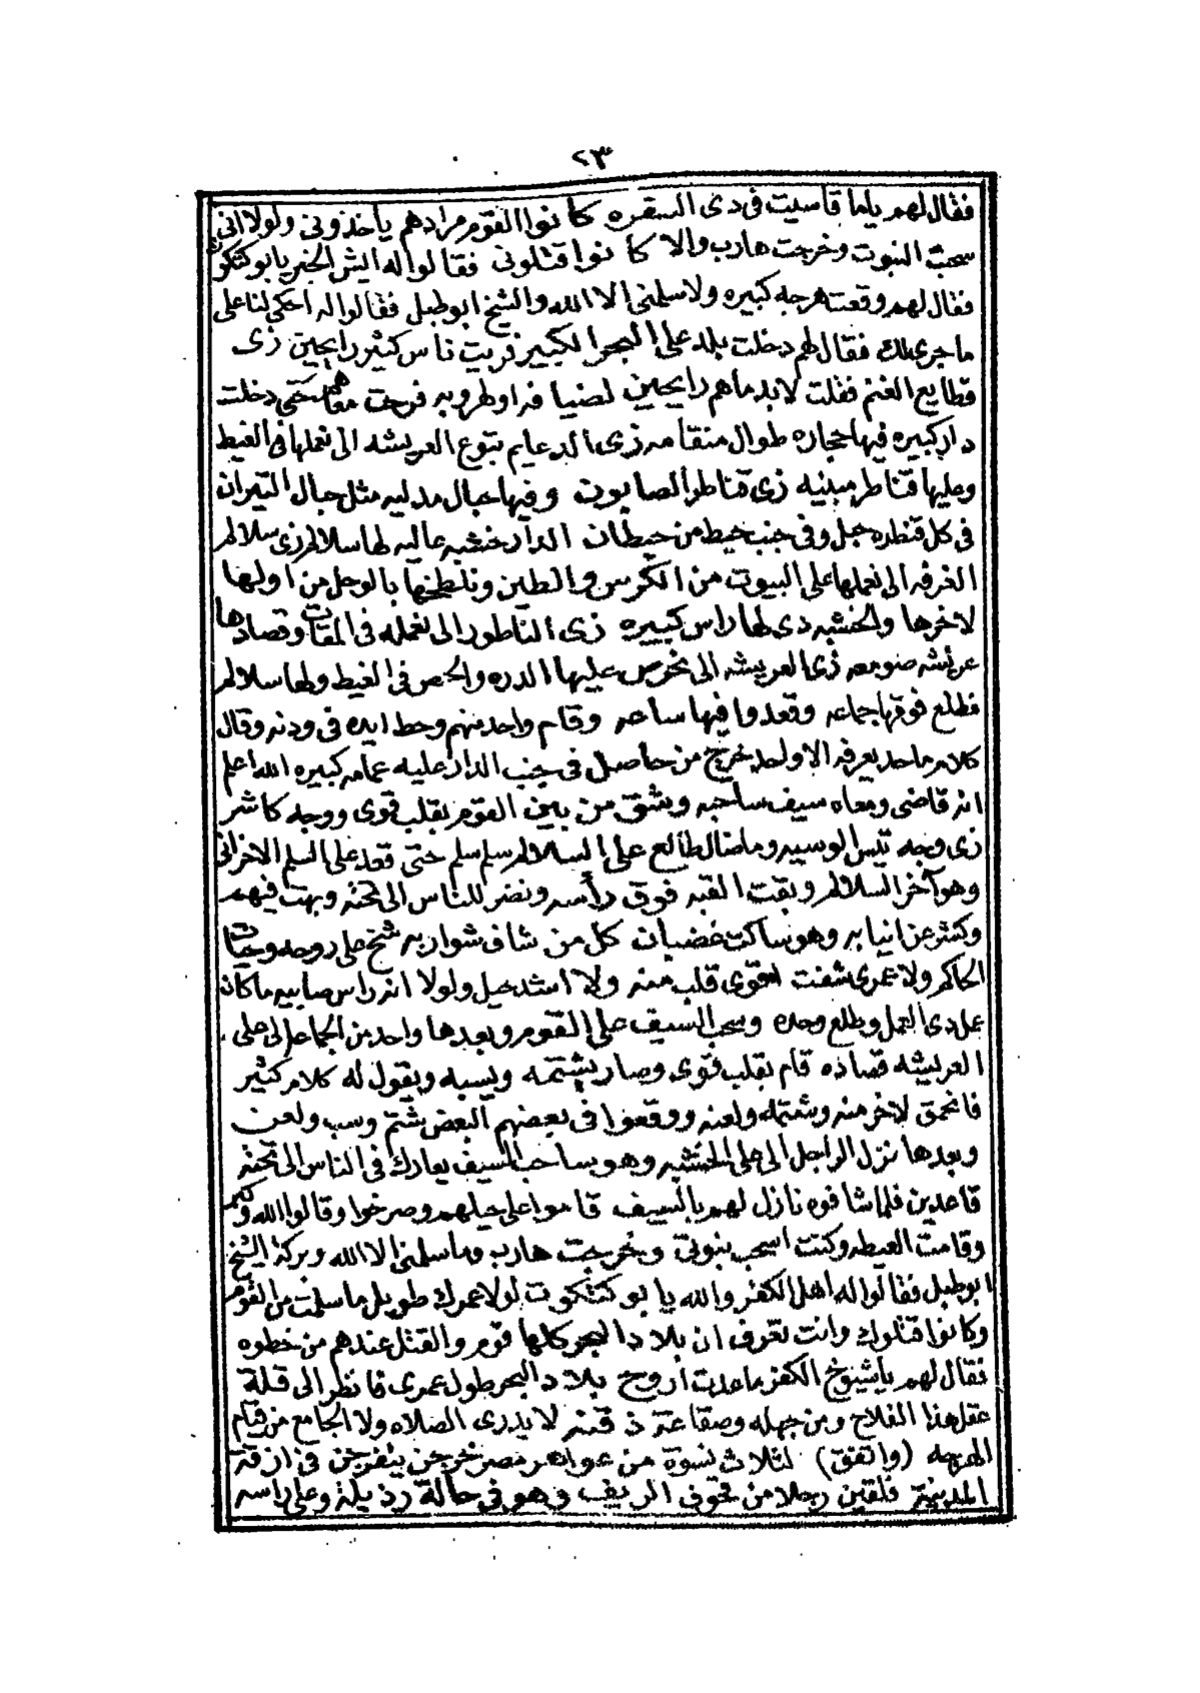 ٢٣
فقال لهم ياما قاسيت فى دى السفره كانوا القوم مرادهم ياخذونى ولولا انى
سحبت النبوت وخرجت هارب والا كانوا قتلونى فقالوا له ايش الخبر يابو كتكوت
فقال لهم وقعت هرجه كبيره ولا سلمنى الا الله والشيخ ابو طبل فقالوا له احكى لنا على
ما جرى لك فقال لهم دخلت بلد على البحر الكبير فريت ناس كثير رايحين زى
قطايع الغنم فقلت لابد ما هم رايحين لضيافه او لطروبه فرحت معاهم حتى دخلت
دار كبيره فيها حجاره طوال منقامه زى الدعايم بتوع العريشه الى نعملها فى الغيط
وعليها قناطر مبنيه زى قناطر الصابون وفيها حبال مدليه مثل حبال التيران
فى كل قنطره حبل وفى جنب حيط من حيطان الدار خشبه عاليه لها سلالم زى سلالم
الغرفه الى نعملها على البيوت من الكرس والطين ونلطخها بالوحل من اولها
لاخرها والخشبه دى لها راس كبيره زى الناطور الى نعمله فى المقات وقصادها
عريشه صومعه زى العريشه الى نحرس عليها الدره والحمص فى الغيط ولها سلالم
فطلع فوقها جماعه وقعدوا فيها ساعه وقام واحد منهم وحط ايده فى ودنه وقال
كلام ما حد يعرفه الا واحد خرج من حاصل فى جنب الدار عليه عمامه كبيره الله اعلم
انه قاضى ومعاه سيف ساحبه وبشق من بين القوم بقلب قوى ووجه كاشر
زى وجه تيس الوسيه وما ضال طالع على السلالم سلم سلم حتى قعد على السلم الاخرانى
وهو آخر السلالم وبقت القبه فوق رأسه ونضر للناس الى تحته وبهت فيهم
وكشر عن انيابه وهو ساكت غضبان كل من شاف شواربه شخ على روحه وحيات
الحاكم ولا عمرى شفت اقوى قلب منه ولا اشد حيل ولولا انه راس صابيه ما كان
عمل دى العمل وطلع وحده وسحب السيف على القوم وبعدها واحد من الجماعه الى على
العريشه قصاده قام بقلب قوى وصار يشتمه ويسبه ويقول له كلام كثير
فانحمق لاخر منه وشتمه ولعنه ووقعوا فى بعضهم البعض شتم وسب ولعن
وبعدها نزل الراجل الى على الخشبه وهو ساحب السيف يعارك فى الناس الى تحته
قاعدين فلما شافوه نازل لهم بالسيف قاموا على حيلهم وصرخوا وقالوا الله وكبر
وقامت العيطه وكنت اسحب بنبوتى وخرجت هارب وما سلمنى الا الله وبركة الشيخ
ابو طبل فقالوا له اهل الكفر والله يا بو كتكوت لولا عمرك طويل ما سلمت من القوم
وكانوا قتلوك وانت تعرف ان بلاد البحر كلها قوم والقتل عندهم من خطوه
فقال لهم يا شيوخ الكفر ما عدت اروح بلاد البحر طول عمرى فانظر الى قلة
عقل هذا الفلاح ومن جهله وصقاعة ذقنه لا يدرى الصلاه ولا الجامع من قيام
الهرجه (واتفق) لثلاث نسوة من عواهر مصر خرجن يتفرجن فى ازقة
المدينة فلقين رجلا من قحوف الريف وهو فى حالة رذيلة وعلى راسه